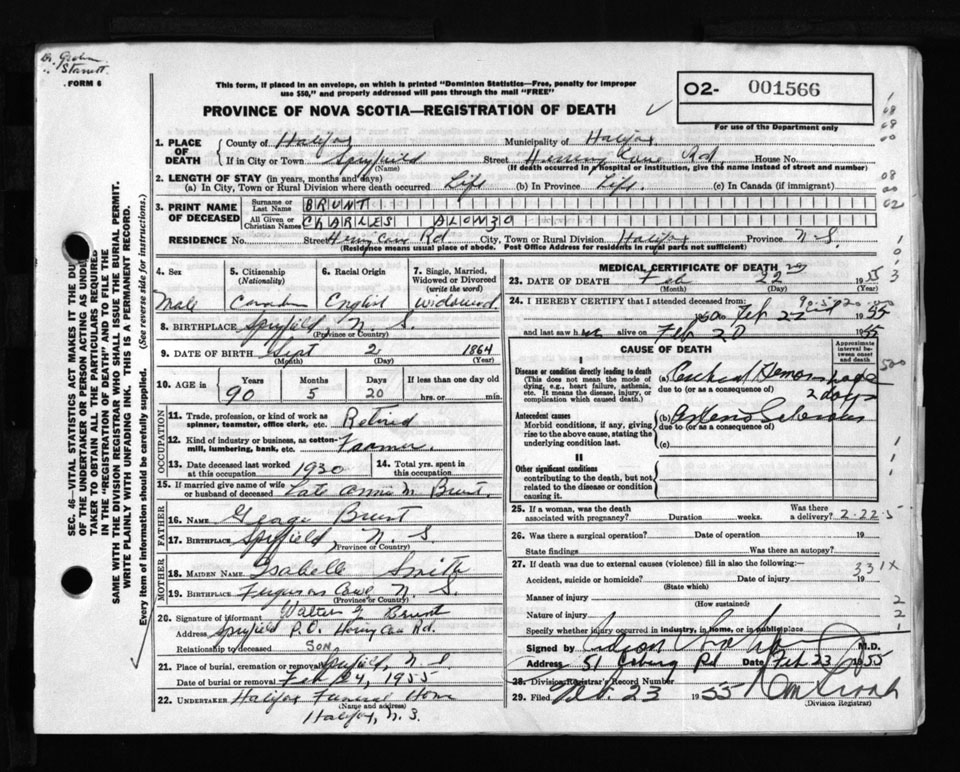 Dr. Graham
" Starrett
FORM 6
This form, if placed in an envelope, on which is printed "Dominion Statistics—Free, penalty for improper
use $50," and properly addressed will pass through the mail "FREE"
PROVINCE OF NOVA SCOTIA—REGISTRATION OF DEATH ✓
02- 001566
For use of the Department only
1. PLACE OF DEATH
County of Halifax Municipality of Halifax
If in City or Town Spryfield Street Herring Cove Rd. House No.
(Name) (If death occurred in a hospital or institution, give the name instead of street and number)
2. LENGTH OF STAY (in years, months and days)
(a) In City, Town or Rural Division where death occurred Life (b) In Province Life. (c) In Canada (if immigrant)
3. PRINT NAME OF DECEASED
Surname or Last Name BRUNT
All Given or Christian Names CHARLES ALONZO
RESIDENCE No. Street Herring Cove Rd. City, Town or Rural Division Halifax Province N.S.
(Residence means usual place of abode. Post Office Address for residents in rural parts not sufficient)
4. Sex Male
5. Citizenship (Nationality) Canadian
6. Racial Origin English
7. Single, Married, Widowed or Divorced (write the word) Widowed
8. BIRTHPLACE Spryfield N. S.
(Province or Country)
9. DATE OF BIRTH Sept 2 1864
(Month) (Day) (Year)
10. AGE in Years 90 Months 5 Days 20 If less than one day old hrs. or min.
OCCUPATION
11. Trade, profession, or kind of work as spinner, teamster, office clerk, etc. Retired
12. Kind of industry or business, as cotton-mill, lumbering, bank, etc. Farmer.
13. Date deceased last worked at this occupation 1930 14. Total yrs. spent in this occupation
15. If married give name of wife or husband of deceased Late Annie M. Brunt.
FATHER
16. NAME George Brunt
17. BIRTHPLACE Spryfield, N. S.
(Province or Country)
MOTHER
18. MAIDEN NAME Isabelle Smith
19. BIRTHPLACE Fergusons Cove N. S.
(Province or Country)
20. Signature of informant Walter Brunt
Address Spryfield P.O. Herring Cove Rd.
Relationship to deceased SON
21. Place of burial, cremation or removal Spryfield, N.S.
Date of burial or removal Feb 24, 1955
22. UNDERTAKER Halifax Funeral Home
(Name and address)
Halifax, N.S.
MEDICAL CERTIFICATE OF DEATH
23. DATE OF DEATH Feb 22 1955
(Month) (Day) (Year)
24. I HEREBY CERTIFY that I attended deceased from:
Feb 22 1955
and last saw h alive on Feb 20 1955
CAUSE OF DEATH
Approximate interval between onset and death
I
Disease or condition directly leading to death
(This does not mean the mode of dying, e.g., heart failure, asthenia, etc. It means the disease, injury, or complication which caused death.)
(a) Cerebral Hemorrhage 2 days
due to (or as a consequence of)
Antecedent causes
Morbid conditions, if any, giving rise to the above cause, stating the underlying condition last.
(b) Arterio Sclerosis
due to (or as a consequence of)
(c)
II
Other significant conditions
contributing to the death, but not related to the disease or condition causing it.
25. If a woman, was the death associated with pregnancy? Duration weeks. Was there a delivery? 2-22-5
26. Was there a surgical operation? Date of operation 19
State findings Was there an autopsy?
27. If death was due to external causes (violence) fill in also the following:
331X
Accident, suicide or homicide? Date of injury 19
(State which)
Manner of injury
(How sustained)
Nature of injury
Specify whether injury occurred in industry, in home, or in public place
Signed by M.D.
Address 51 Rd Date Feb 23 1955
28. Division Registrar's Record Number
29. Filed Feb. 23 1955
(Division Registrar)
SEC. 46—VITAL STATISTICS ACT MAKES IT THE DUTY
OF THE UNDERTAKER OR PERSON ACTING AS UNDER
TAKER TO OBTAIN ALL THE PARTICULARS REQUIRED
IN THE "REGISTRATION OF DEATH" AND TO FILE THE
SAME WITH THE DIVISION REGISTRAR WHO SHALL ISSUE THE BURIAL PERMIT.
WRITE PLAINLY WITH UNFADING INK. THIS IS A PERMANENT RECORD.
Every item of information should be carefully supplied. (See reverse side for instructions.)